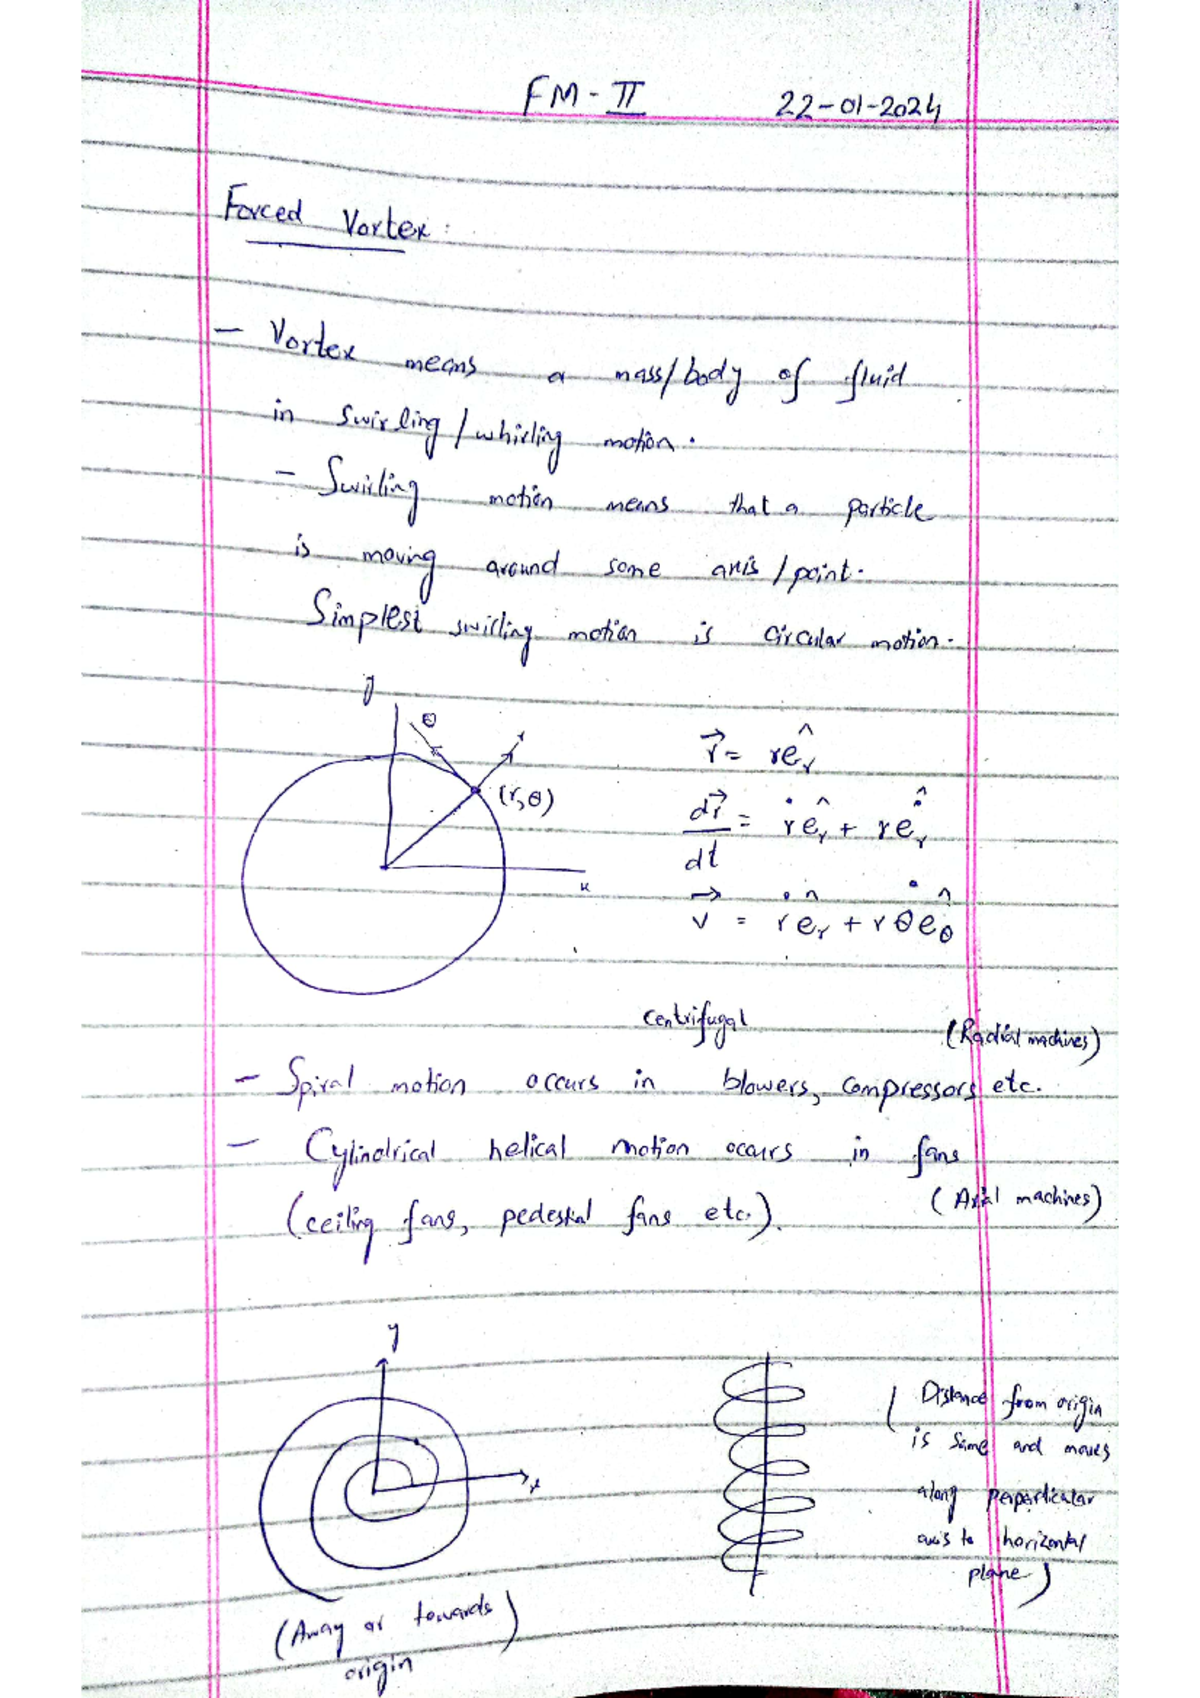 FM-II 22-01-2024
Forced Vortex:
- Vortex means a mass/body of fluid
in swirling/whirling motion.
- Swirling motion means that a particle
is moving around some axis/point.
Simplest swirling motion is circular motion.
y
θ
r
(r,θ)
x
r⃗ = r êᵣ
dr⃗/dt = ṙ êᵣ + r ê̇ᵣ
v⃗ = ṙ êᵣ + r θ̇ ê_θ
centrifugal (Radial machines)
- Spiral motion occurs in blowers, compressors etc.
- Cylindrical helical motion occurs in fans
(Axial machines)
(ceiling fans, pedestal fans etc.).
y
x
(Away or towards
origin)
(Distance from origin
is same and moves
along perparticular
axis to horizontal
plane)